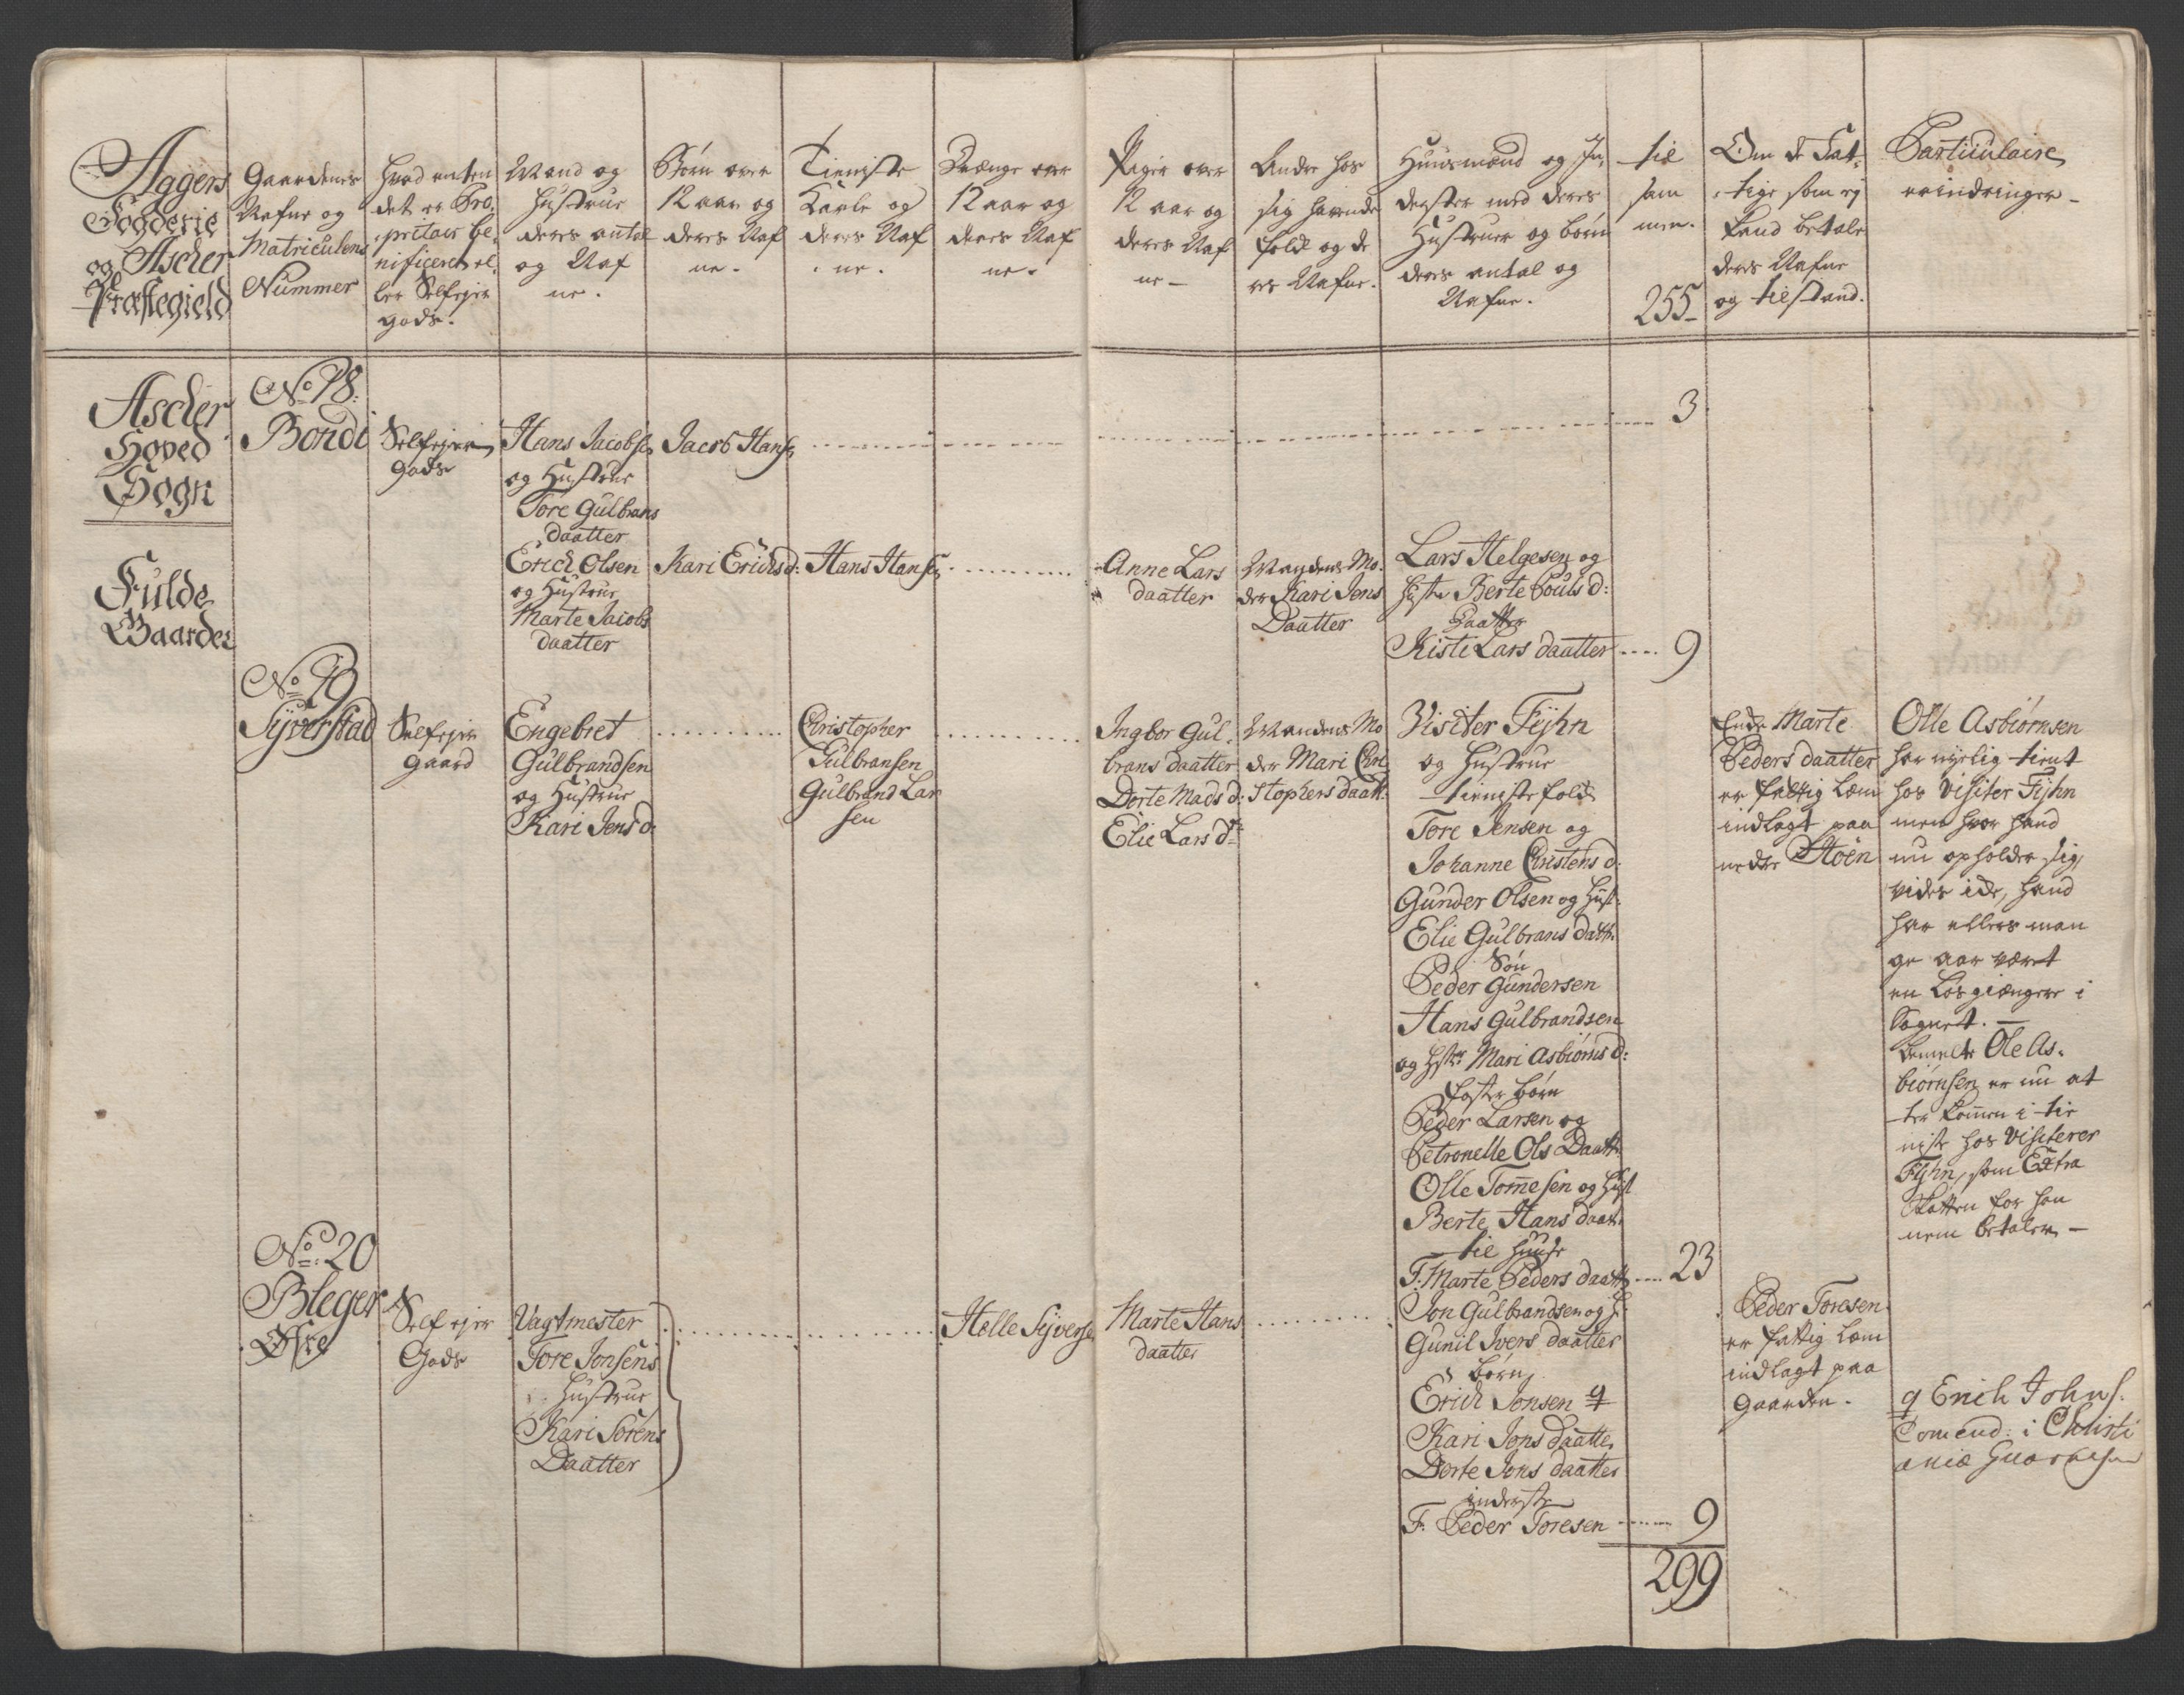 Aggers
Fogderie
og Ascher
Præstegield
Gaardenes
Nafne og
Matriculens
Nummer
Hvad enten
det er Pro-
pritair be-
nificeret el-
ler Selfejer
gods.
Mand og
Hustrue
deres antal
og Naf
ne.
Børn over
12 aar og
deres Naf
ne.
Tieniste
Karle og
deres Naf
ne.
Drænge over
12 aar og
deres Naf
ne.
Piger over
12 aar og
deres Naf
ne
Andre hos
sig havende
folk og de
res Nafne.
Huusmænd og In-
derster med deres
Hustruer og børn
deres antal og
Nafne.
til
sam
men.
255
Om de Fat-
tige som ej
kand betale
deres Nafne
og tilstand.
Particulaire
erindringer
Ascher
Hoved
Sogn
Fulde
Gaarder
No 18:
Bondi
Selfejer
gods
Hans Jacobsen
og Hustrue
Tore Gulbrans
daatter
Jacob Hans.
3
Erich Olsen
og Hustrue
Marte Jacobs
daatter
Kari Erichs d:
Hans Hansen
Anne Lars
daatter
Mandens Mo-
der Kari Jens
Daatter
Lars Helgesen og
Hustr Berte Pouls d:
Daatter
Kisti Lars daatter
9
No 19
Syverstad
Selfejer
gaard
Engebret
Gulbrandsen
og Hustrue
Kari Jens d:
Christopher
Gulbransen
Gulbrand Lar
sen
Ingbor Gul-
brans daatter
Dorte Mads d:
Elie Lars dr
Mandens Mo
der Mari Chri
stophers daatt:
Visiter Fyhn
og Hustrue
tieniste folk
Tore Jensen og
Johanne Christens d:
Gunder Olsen og Hust:
Elie Gulbrans datt:
Søn
Peder Gundersen
Hans Gulbrandsen
og Hstr: Mari Asbiørns d:
foster børn
Peder Larsen og
Petronelle Ols Daatt:
Olle Tom̅esen og Hust
Berte Hans daatt:
til huuse
F. Marte Peders daatter
23
Enke Marte
Peders daatter
er fattig Lem
indlagt paa
nedre Støen
Olle Asbiørnsen
har nyelig tient
hos Visiter Fyhn
men hvor hand
nu opholder sig,
vides icke, hand
har ellers man
ge aar været
en Løsgiængere i
Sognet.
bemelte Ole As-
biørnsen er nu at
ter kom̅en i tie
niste hos Visiterer
Fyhn, som Extra
Skatten for han
nem betaler
No: 20
Bleger
Øfre
Self ejer
Gods
Vagtmester
Tore Jonsens
Hustrue
Kari Sørens
Daatter
Helle Syvers.
Marte Hans
daatter
Jon Gulbrandsen og H:
Gunil Ivers daatter
børn
Erich Jonsen q
Kari Jons daatter
Dorte Jons daatter
inderste
F. Peder Toresen
9
299
Peder Toresen
er fattig Lem
indlagt paa
gaarden.
q Erich Johns.
Comend: i Christi
aniæ Guarnison